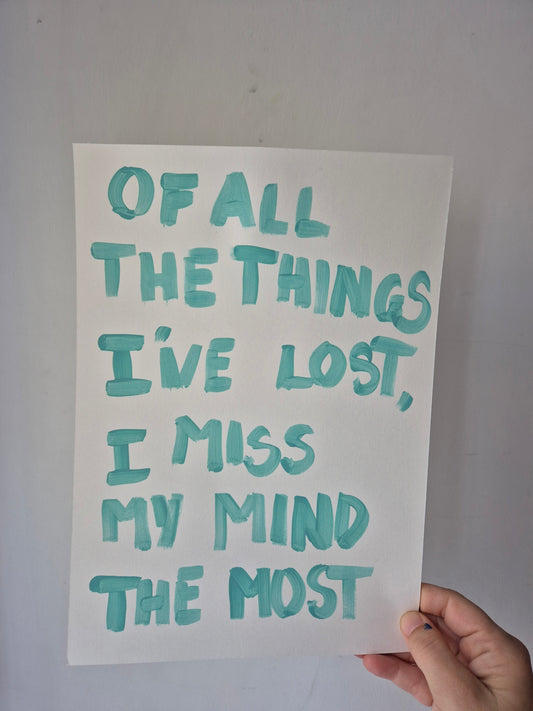 OF ALL
THE THINGS
I'VE LOST,
I MISS
MY MIND
THE MOST